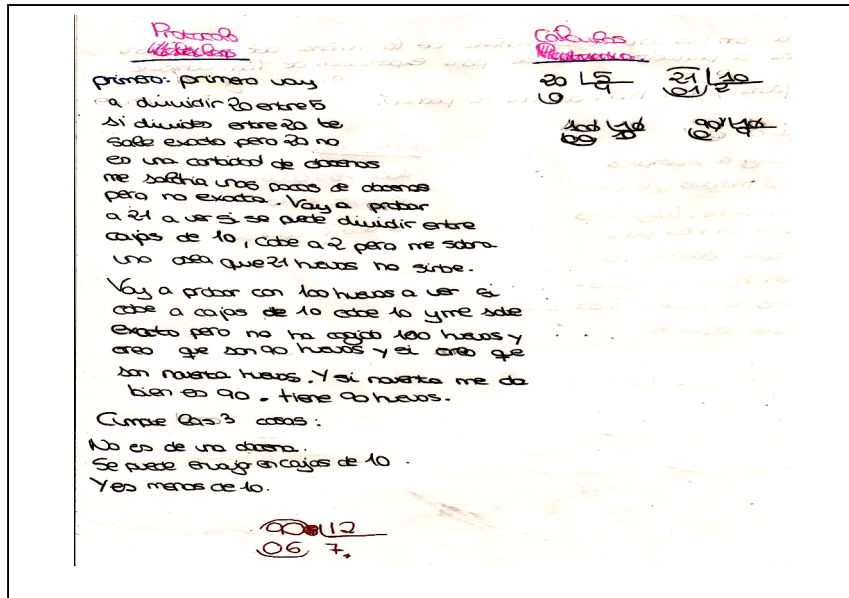 Protocolo
Cálculos
primero: primero voy
a diuidir 20 entre 5
si diuides entre 20 te
sale exacto pero 20 no
es una cantidad de docenas
me saldria unos pocos de docenas
pero no exacta. Voy a probar
a 21 a ver si se puede diuidir entre
cajas de 10, cabe a 2 pero me sobra
uno osea que 21 huevos no sirbe.
Voy a probar con 100 huevos a ver si
cabe a cajas de 10 cabe 10 y me sale
exacto pero no ha cogido 100 huevos y
creo que son 90 huevos y si creo que
son noventa huevos. Y si noventa me da
bien es 90. tiene 90 huevos.
Cumple las 3 cosas:
No es de una docena.
Se puede encajar en cajas de 10.
Y es menos de 10.
20 5
0 4
21 10
01 2
100 10
90 10
0 9
90 12
06 7.